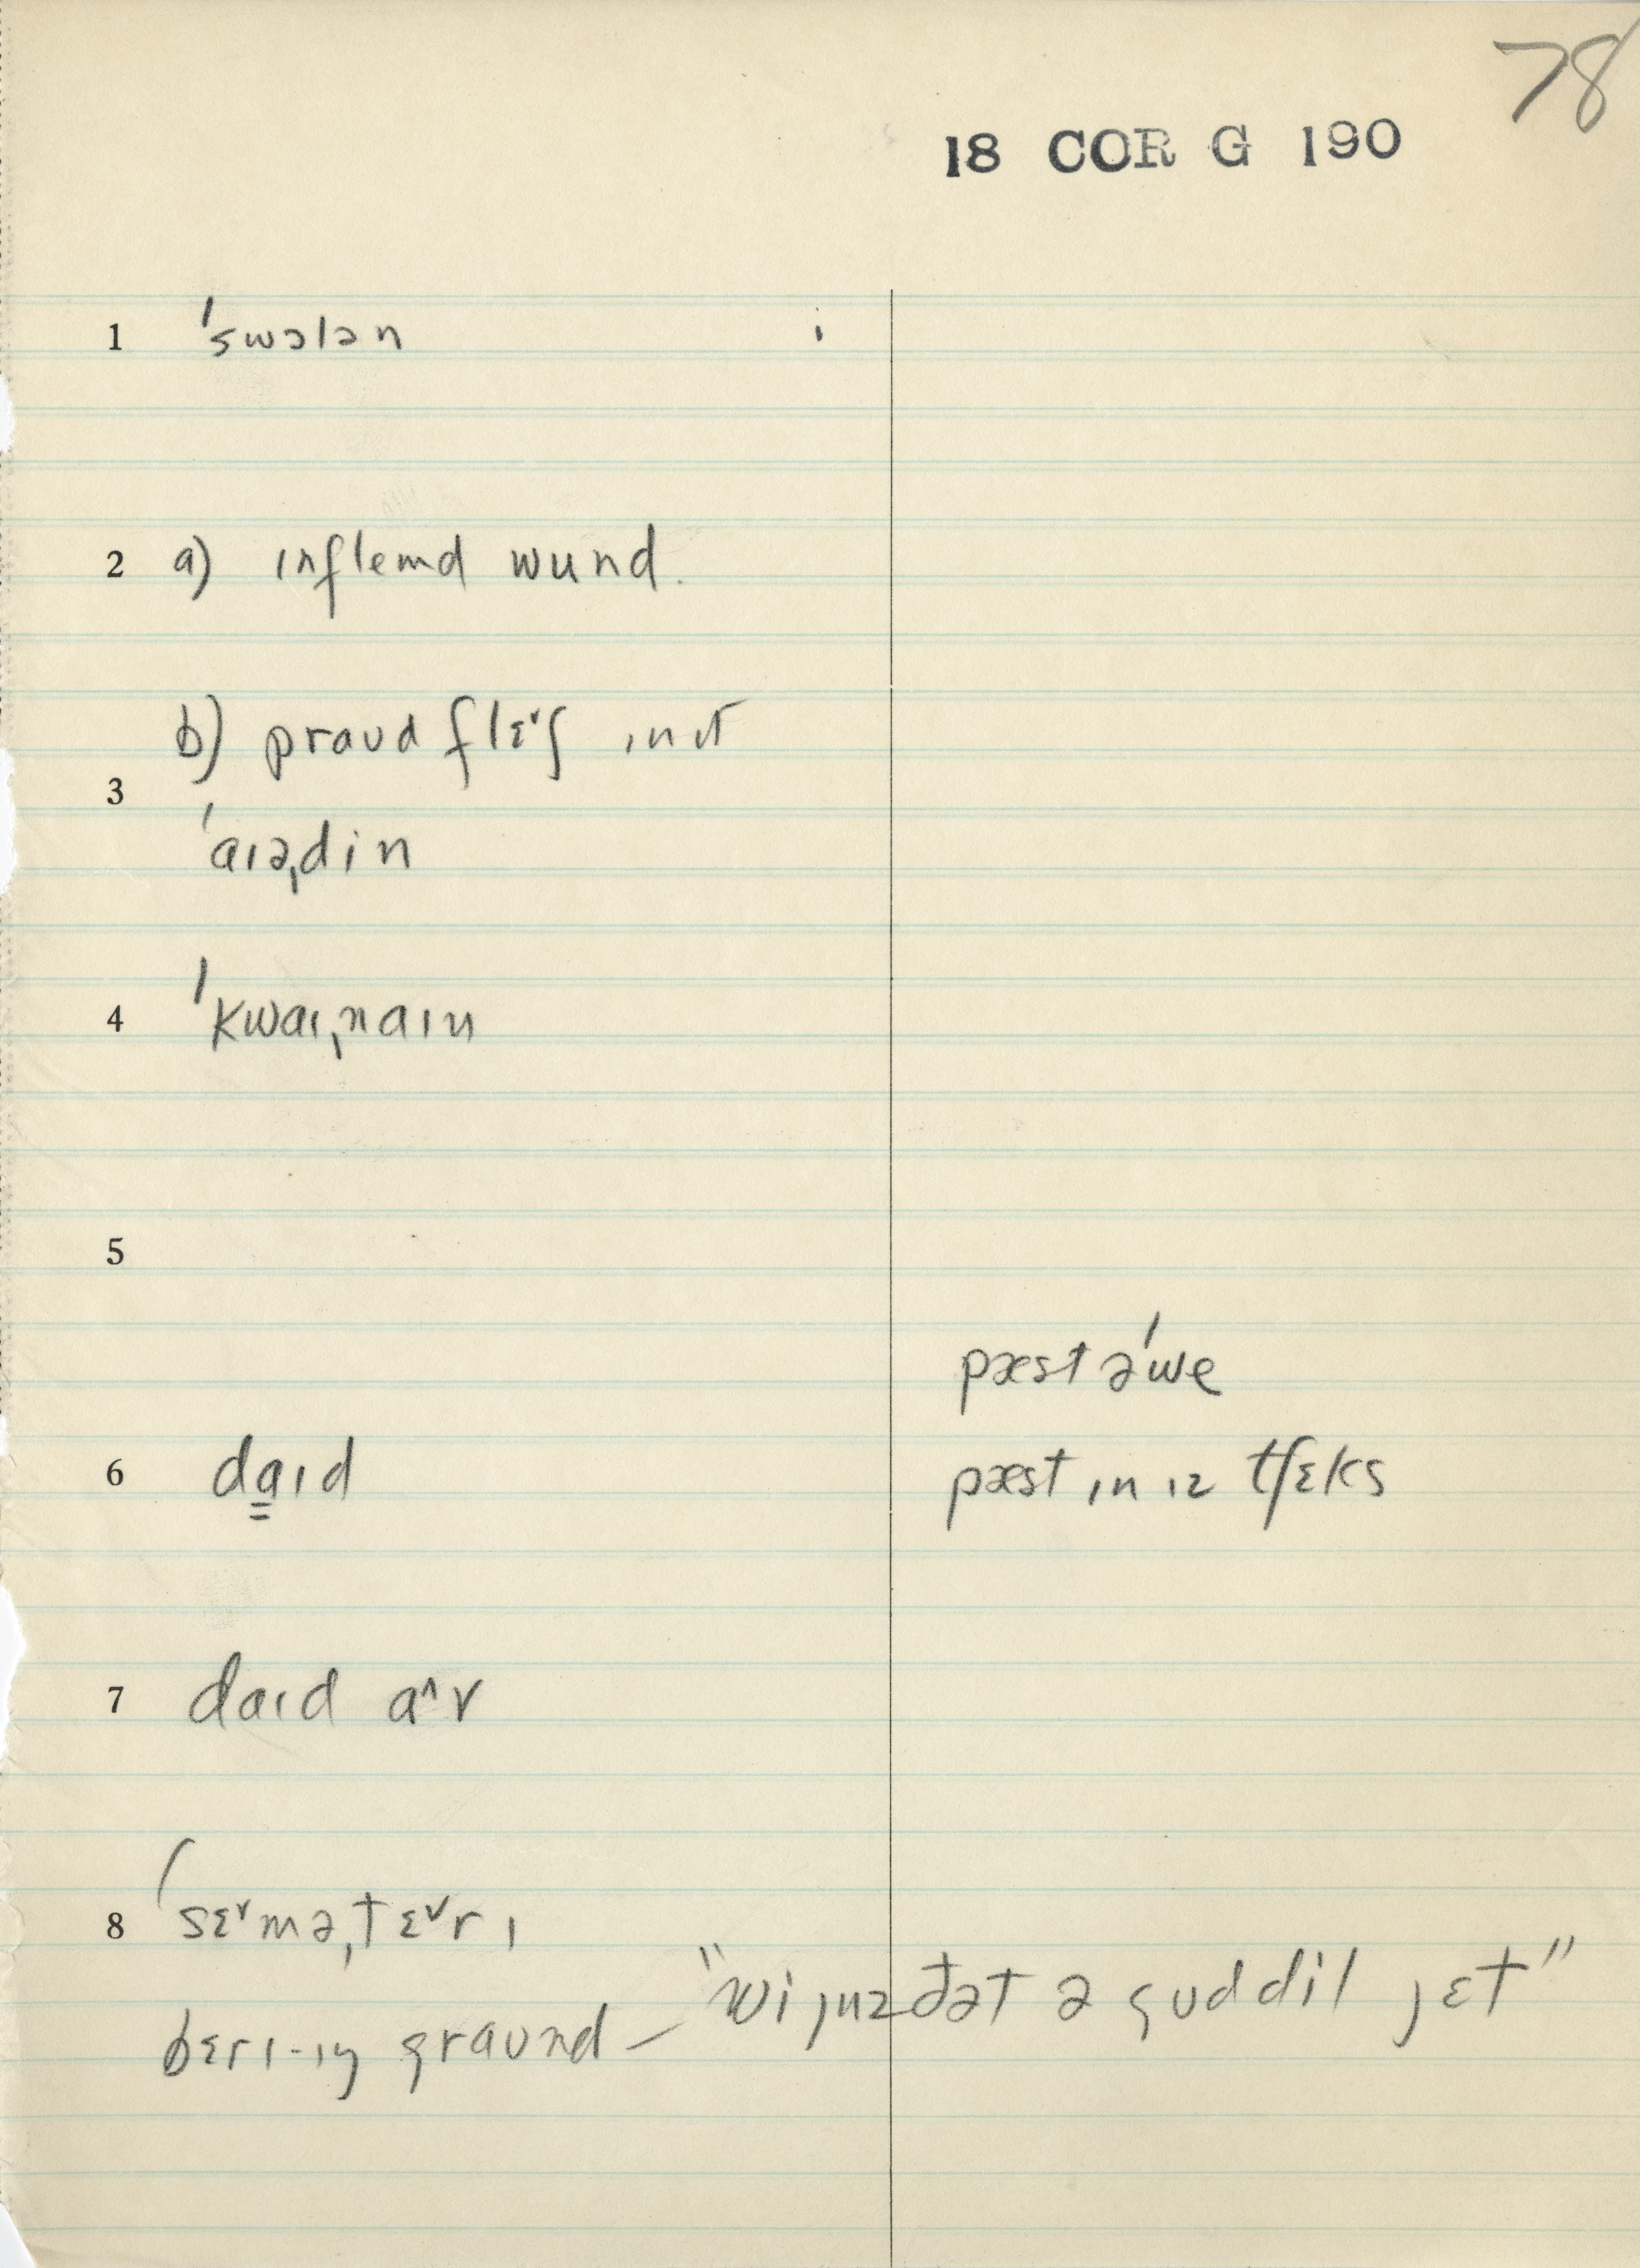 78
18 COR G 190
1 ˈswɔlən
2 a) ɪnflemd wund.
b) praʊd flɛ˅ʃ ɪn ɪt
3 ˈaɪəˌdin
4 ˈkwaɪˌnaɪn
5
pæst əˈwe
6 da̳ɪd pæst ɪn ɪz tʃɛks
7 daɪd a˄v
8 ˈsɛ˅məˌtɛ˅rɪ
bɛrɪ-ɪŋ graʊnd – "wi juz ðət ə gʊd dil jɛt"